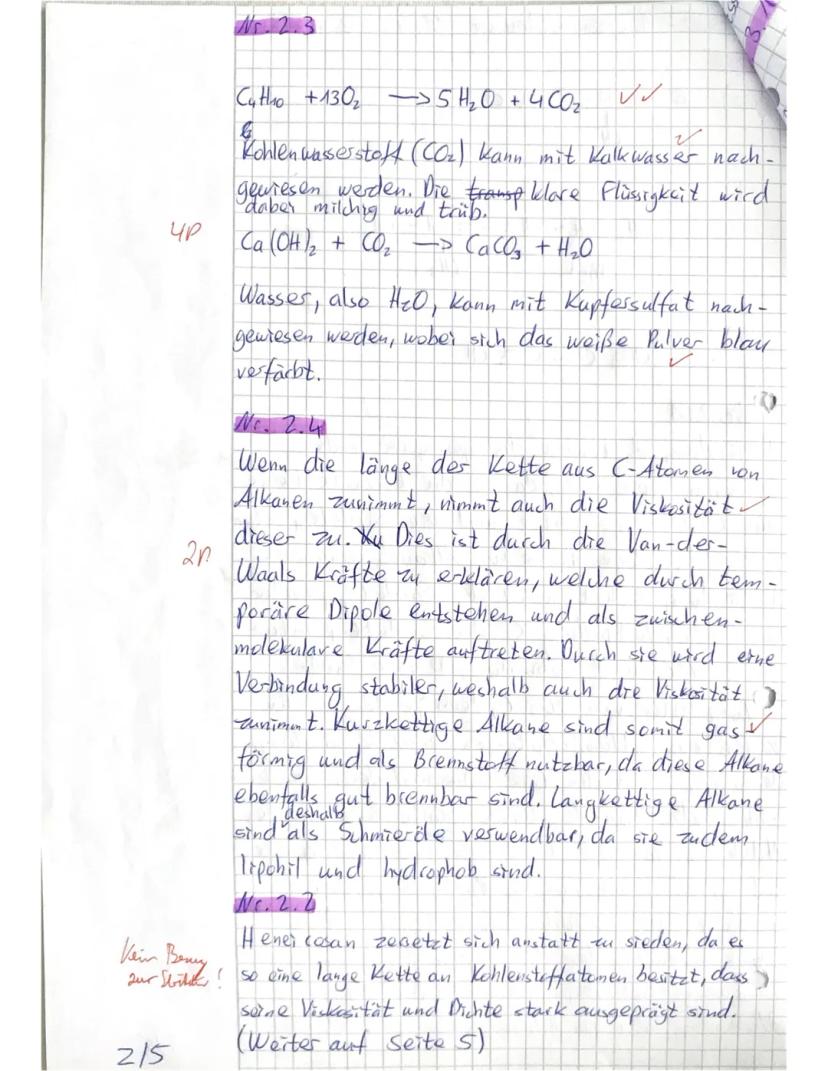 Nr. 2.3
3.
C₄H₁₀ + 13O₂ → 5 H₂O + 4 CO₂ ✓✓
Kohlenwasserstoff (CO₂) kann mit Kalkwasser nach-
gewiesen werden. Die transp klare Flüssigkeit wird
dabei milchig und trüb.
4P
Ca(OH)₂ + CO₂ → CaCO₃ + H₂O
Wasser, also H₂O, kann mit Kupfersulfat nach-
gewiesen werden, wobei sich das weiße Pulver blau
verfärbt.
Nr. 2.4
Wenn die länge der Kette aus C-Atomen von
Alkanen zunimmt, nimmt auch die Viskosität
dieser zu. Dies ist durch die Van-der-
2P
Waals Kräfte zu erklären, welche durch tem-
poräre Dipole entstehen und als zwischen-
molekulare Kräfte auftreten. Durch sie wird eine
Verbindung stabiler, weshalb auch die Viskosität
zunimmt. Kurzkettige Alkane sind somit gas
förmig und als Brennstoff nutzbar, da diese Alkane
ebenfalls gut brennbar sind. Langkettige Alkane
sind deshalb als Schmieröle verwendbar, da sie zudem
lipohil und hydrophob sind.
Nr. 2.2
Heneicosan zersetzt sich anstatt zu sieden, da es
Kein Bezug
so eine lange Kette an Kohlenstoffatomen besitzt, dass
zur !
seine Viskosität und Dichte stark ausgeprägt sind.
(Weiter auf Seite 5)
2/5